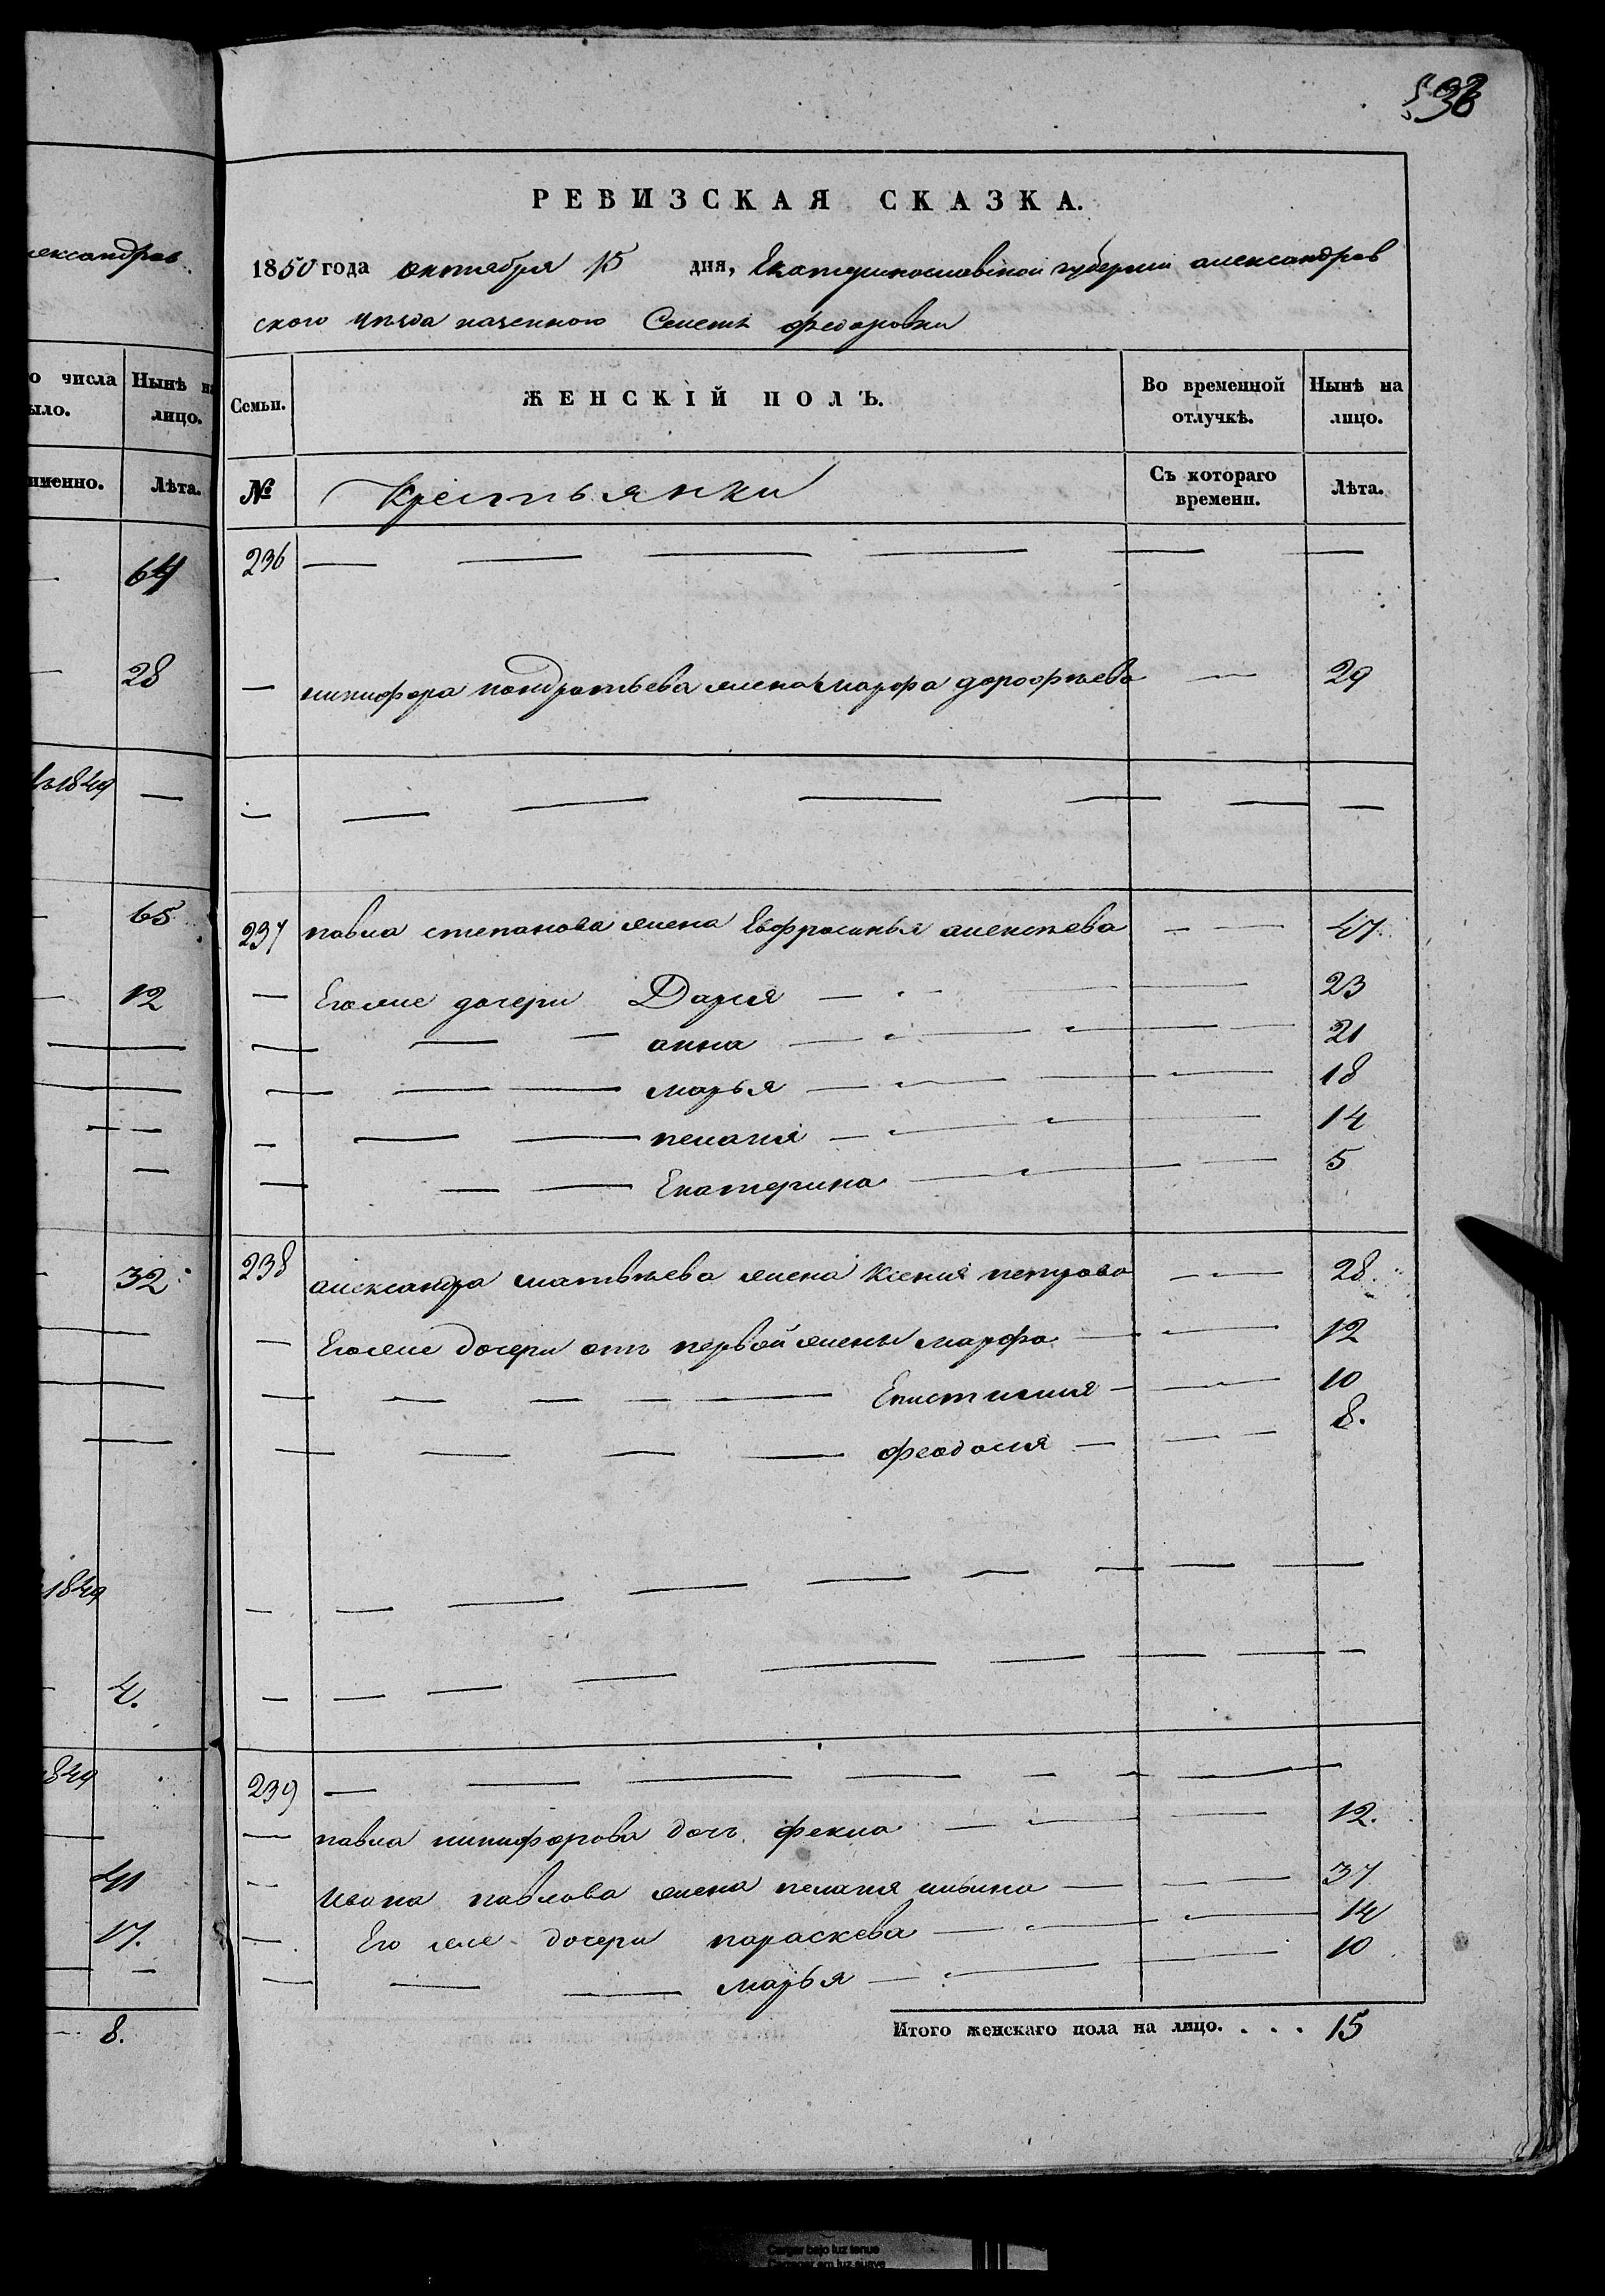 лександров
о числа
ыло.
Нынѣ н
лицо.
именно.
Лѣта.
64
28
1849
65
12
32
1849
4.
1849
41
17.
8.
РЕВИЗСКАЯ СКАЗКА.
1850 года октября 15 дня, Екатеринославской губернии александров
ского уѣзда казенного Селенія федоровки
Семьи.
ЖЕНСКІЙ ПОЛЪ.
Во временной отлучкѣ.
Нынѣ на лицо.
№
Крестьянки
Съ котораго времени.
Лѣта.
236 — — — — — —
— никифора кондратьева жена марфа дорофѣева — 29
— — — — — — —
237 павла степанова жена Евфросинья алексѣева — — 47
— Его же дочери Дарья — 23
— — — анна — 21
— — — марья — 18
— — — пелагія — 14
— — — Екатерина — 5
238 александра матвѣева жена Ксения петрова — — 28.
— Его же дочери отъ первой жены марфа — 12
— — — — — — Епистимия — 10
— — — — — феодосия — 8.
— — — — — — — — —
— — — — — — — — —
239 — — — — — — — —
— павла никифорова дочь фекла — 12.
— Ивана павлова жена пелагия ильина — 37
— Его же дочери параскева — 14
— — — марья — 10
Итого женскаго пола на лицо. . . . 15
Cargar bajo luz tenue
Carregar em luz suave